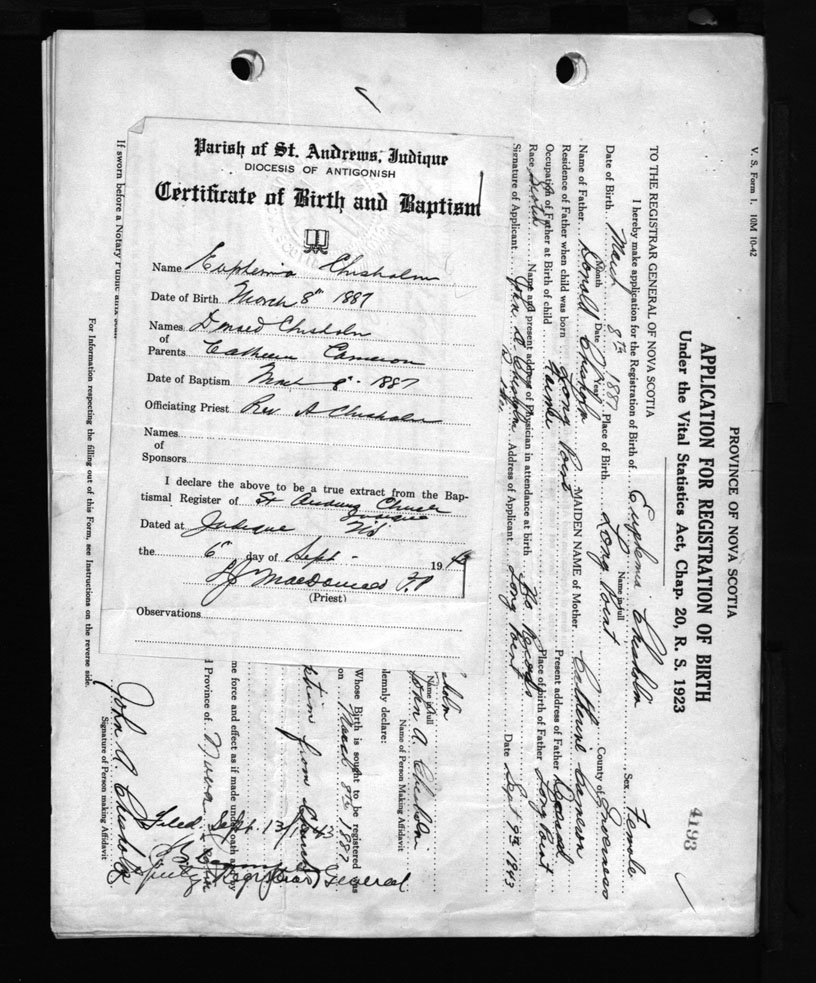 Parish of St. Andrews, Judique
DIOCESE OF ANTIGONISH
Certificate of Birth and Baptism
Name Euphemia Chisholm
Date of Birth March 8th 1887
Names of Parents Donald Chisholm
Catherine Cameron
Date of Baptism 8th 1887
Officiating Priest Rev. A Chisholm
Names
of
Sponsors
I declare the above to be a true extract from the Bap-
tismal Register of St Andrews Church
Judique
Dated at Judique NS
the 6th day of Sept - 1943
MacDonald P.P
(Priest)
Observations
V. S. Form 1. 10M 10-42
PROVINCE OF NOVA SCOTIA
APPLICATION FOR REGISTRATION OF BIRTH
Under the Vital Statistics Act, Chap. 20, R. S. 1923
4193
TO THE REGISTRAR GENERAL OF NOVA SCOTIA
I hereby make application for the Registration of Birth of Euphemia Chisholm Sex Female
Name in full
Date of Birth March 8th 1887 Place of Birth Long Point County of Inverness
Month Date Year
Name of Father Donald Chisholm MAIDEN NAME of Mother Catherine Cameron
Residence of Father when child was born Long Point Present address of Father Deceased
Occupation of Father at Birth of child Farmer Place of birth of Father Long Point
Race Scotch Name and present address of Physician in attendance at birth No Records
Signature of Applicant John A. Chisholm Address of Applicant Long Point Date Sept 9th 1943
holm
Name in full
John A. Chisholm
Name of Person Making Affidavit
lemnly declare:
Whose Birth is sought to be registered was
on March 8th 1887
from Church
me force and effect as if made under oath and by
d Province of Nova Scotia
Filed Sept. 13/43
Deputy Registrar General
John A Chisholm
Signature of Person making Affidavit
If sworn before a Notary Public
For Information respecting the filling out of this Form, see Instructions on the reverse side.